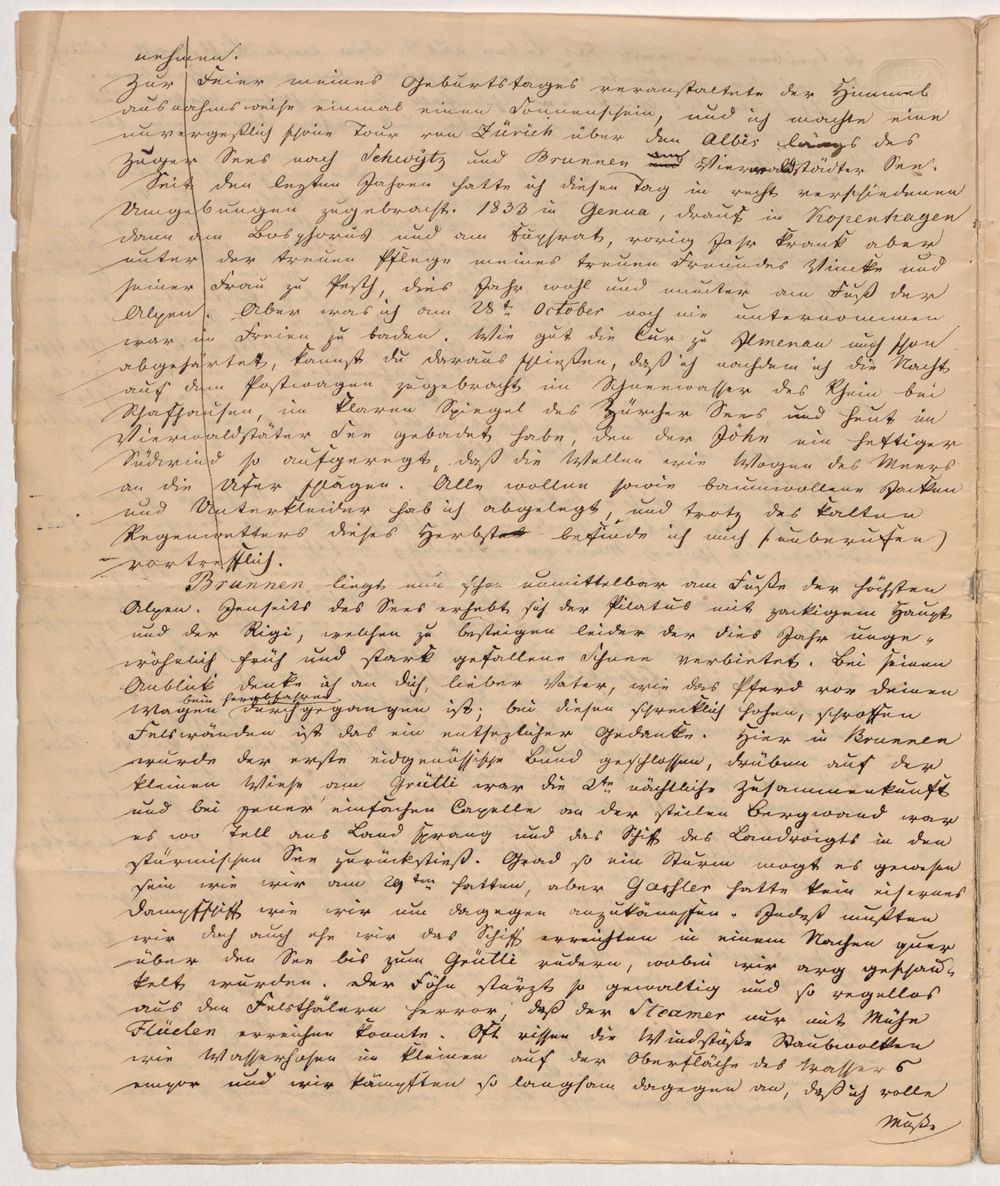 nehmen.
Zur Feier meines Geburtstages veranstaltete der Himmel
ausnahmsweise einmal einen Sonnenschein, und ich machte eine
unvergeßlich schöne Tour von Zürich über den Albis längs des
Zuger Sees nach Schwytz und Brunnen am Vierwaldstädter See.
Seit den lezten Jahren hatte ich diesen Tag in recht verschiedenen
Umgebungen zugebracht. 1833 in Genua, drauf in Kopenhagen
dann am Bosphorus und am Euphrat, vorig Jahr krank aber
unter der treuen Pflege meines treuen Freundes Vincke und
seiner Frau zu Pesth, dies Jahr wohl und munter am Fuß der
Alpen. Aber was ich am 28t. October noch nie unternommen
war im Freien zu baden. Wie gut die Cur zu Ilmenau mich schon
abgehärtet, kannst du daraus schließen, daß ich nachdem ich die Nacht
auf dem Postwagen zugebracht im Schneewasser des Rhein bei
Schafhausen, im klaren Spiegel des Zürcher Sees und heut im
Vierwaldstäter See gebadet habe, den der Föhn ein heftiger
Südwind so aufgeregt, daß die Wellen wie Wogen des Meers
an die Ufer schlagen. Alle wollen sowie baumwollene Jacken
und Unterkleider hab ich abgelegt, und trotz des kalten
Regenwetters dieses Herbstes befinde ich mich (unberufen)
vortrefflich.
Brunnen liegt nun schon unmittelbar am Fuße der höchsten
Alpen. Jenseits des Sees erhebt sich der Pilatus mit zackigem Haupt
und der Rigi, welchen zu besteigen leider der dies Jahr unge-
wöhnlich früh und stark gefallene Schnee verbietet. Bei seinem
Anblick denke ich an Dich, lieber Vater, wie das Pferd vor deinem
beim herabfahren
Wagen durchgegangen ist; bei diesen schrecklich hohen, schroffen
Felswänden ist das ein entsezlicher Gedanke. Hier in Brunnen
wurde der erste eidgenössische Bund geschlossen, drüben auf der
kleinen Wiese am Grütli war die 2te nächtliche Zusammenkunft
und bei jener einfachen Capelle an der steilen Bergwand war
es wo Tell ans Land sprang und das Schiff des Landvoigts in den
stürmischen See zurückstieß. Grad so ein Sturm mogt es gewesen
sein wie wir am 29ten hatten, aber Gaßler hatte kein eisernes
Dampfschiff wie wir um dagegen anzukämpfen. Indeß mußten
wir doch auch ehe wir das Schiff erreichten in einem Nachen quer
über den See bis zum Grütli rudern, wobei wir arg geschau-
kelt wurden. Der Föhn stürzt so gewaltig und so regellos
aus den Felsthälern hervor, daß der Steamer nur mit Mühe
Flüelen erreichen konnte. Oft rissen die Windstöße Staubwolken
wie Wasserhosen im kleinen auf der Oberfläche des Wassers
empor und wir kämpften so langsam dagegen an, daß ich volle
Muße